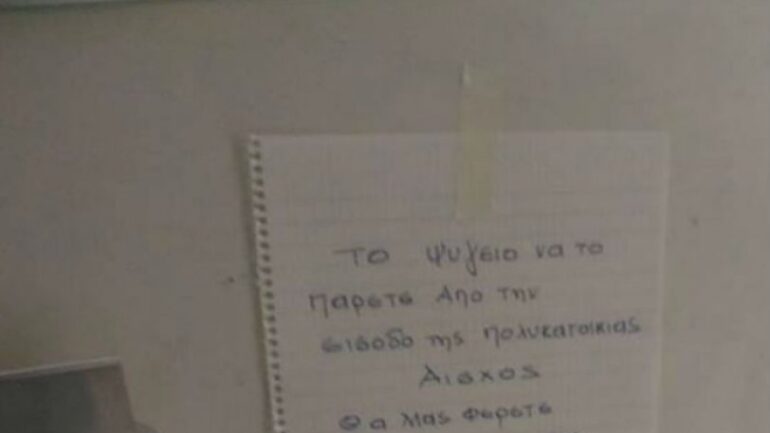 Το ψυγειο να το
παρετε απο την
εισοδο της πολυκατοικιας
Αισχος
Θα μας φερετε